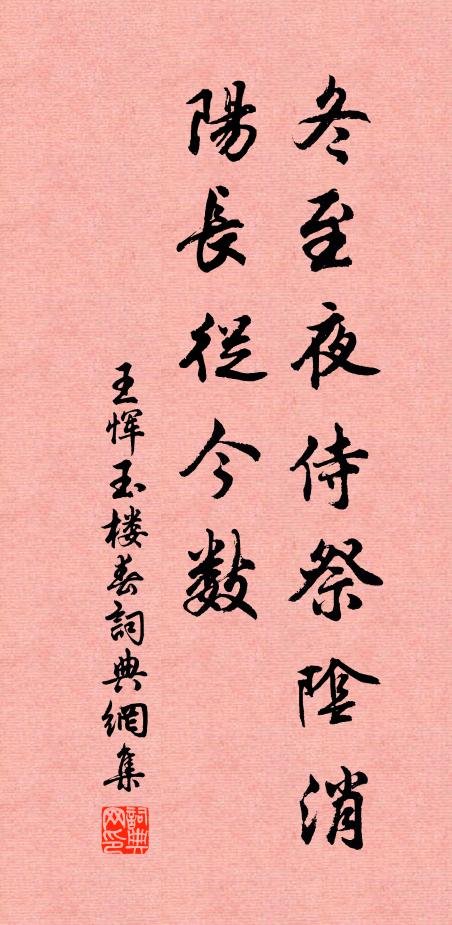 冬至夜侍祭陰消
陽長從今數
王恽玉楼春詞典網集
詞典网印